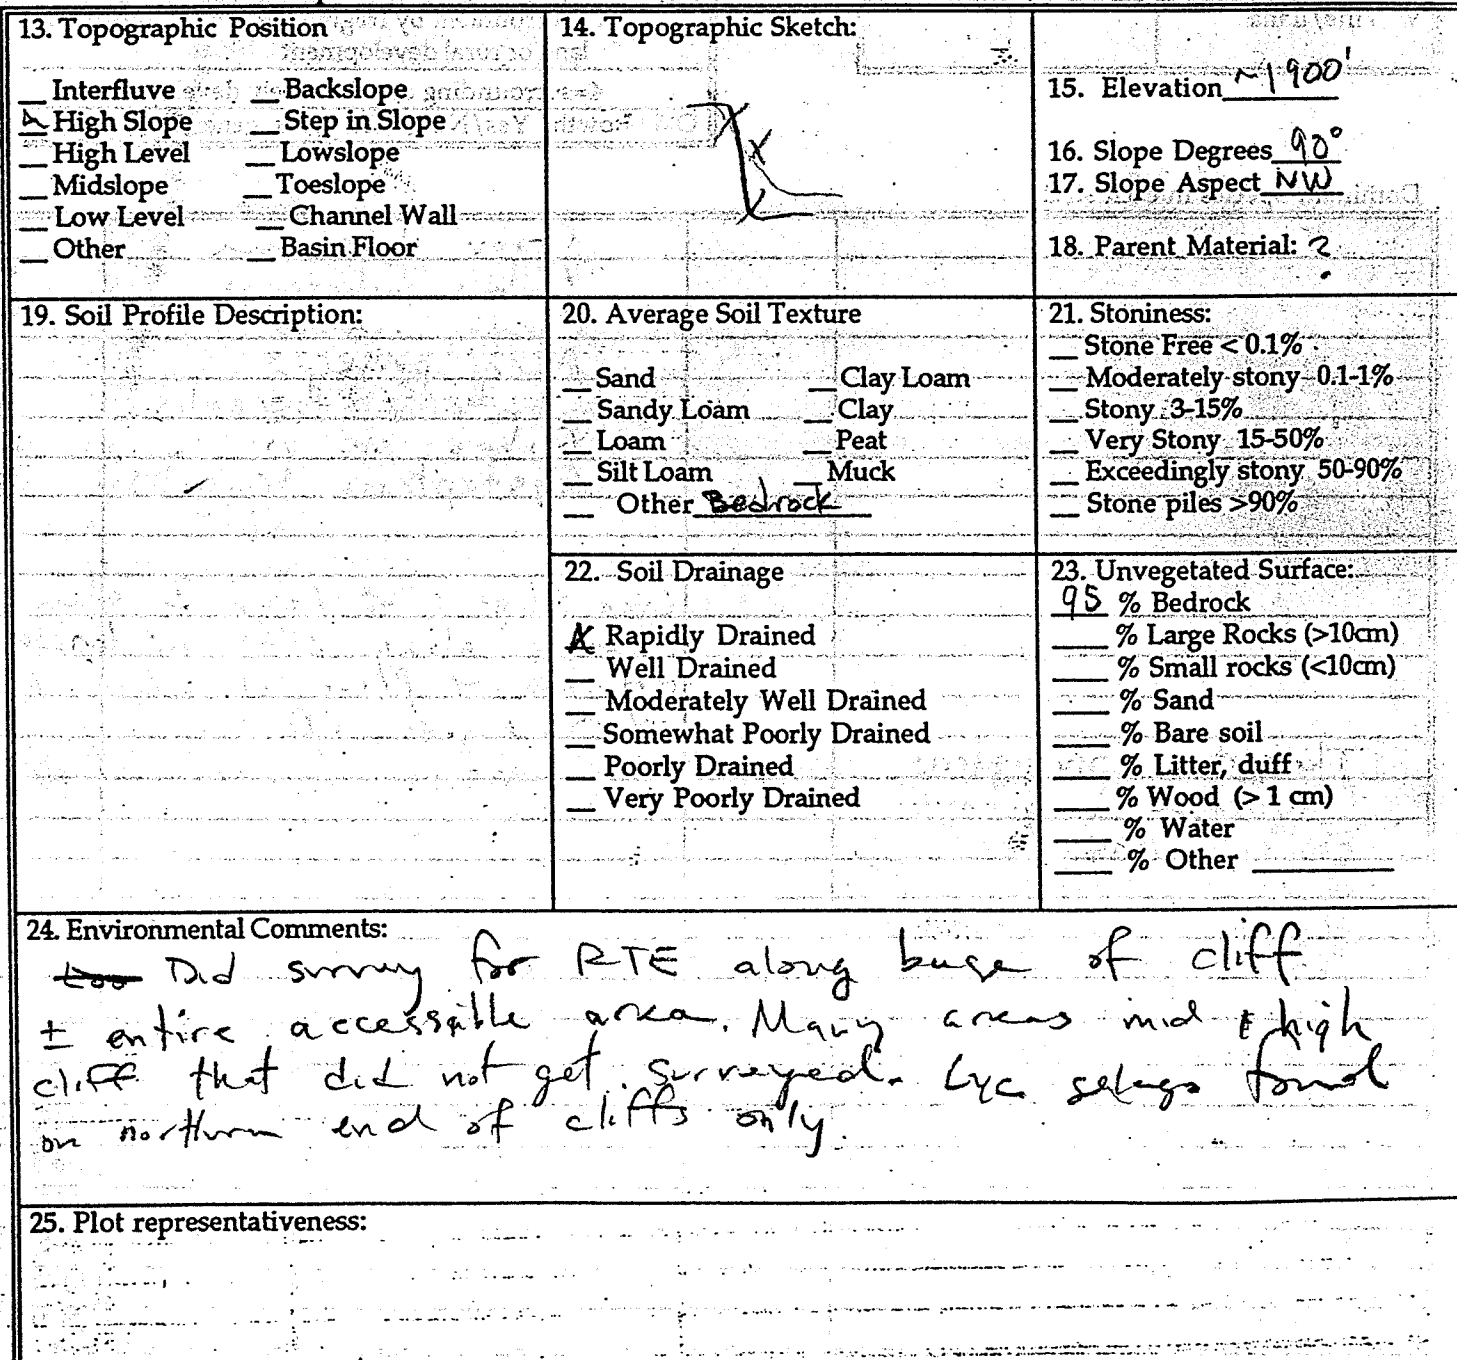 13. Topographic Position
__ Interfluve __ Backslope
X High Slope __ Step in Slope
__ High Level __ Lowslope
__ Midslope __ Toeslope
__ Low Level __ Channel Wall
__ Other __ Basin Floor
14. Topographic Sketch:
15. Elevation ~1900'
16. Slope Degrees 90°
17. Slope Aspect NW
18. Parent Material: ?
19. Soil Profile Description:
20. Average Soil Texture
__ Sand __ Clay Loam
__ Sandy Loam __ Clay
__ Loam __ Peat
__ Silt Loam __ Muck
__ Other Bedrock
21. Stoniness:
__ Stone Free < 0.1%
__ Moderately stony 0.1-1%
__ Stony 3-15%
__ Very Stony 15-50%
__ Exceedingly stony 50-90%
__ Stone piles >90%
22. Soil Drainage
X Rapidly Drained
__ Well Drained
__ Moderately Well Drained
__ Somewhat Poorly Drained
__ Poorly Drained
__ Very Poorly Drained
23. Unvegetated Surface:
95 % Bedrock
___ % Large Rocks (>10cm)
___ % Small rocks (<10cm)
___ % Sand
___ % Bare soil
___ % Litter, duff
___ % Wood (> 1 cm)
___ % Water
___ % Other ________
24. Environmental Comments:
Did survey for RTE along base of cliff
± entire accessable area. Many areas mid & high
cliff that did not get surveyed. Lyc selago found
on northern end of cliffs only.
25. Plot representativeness: